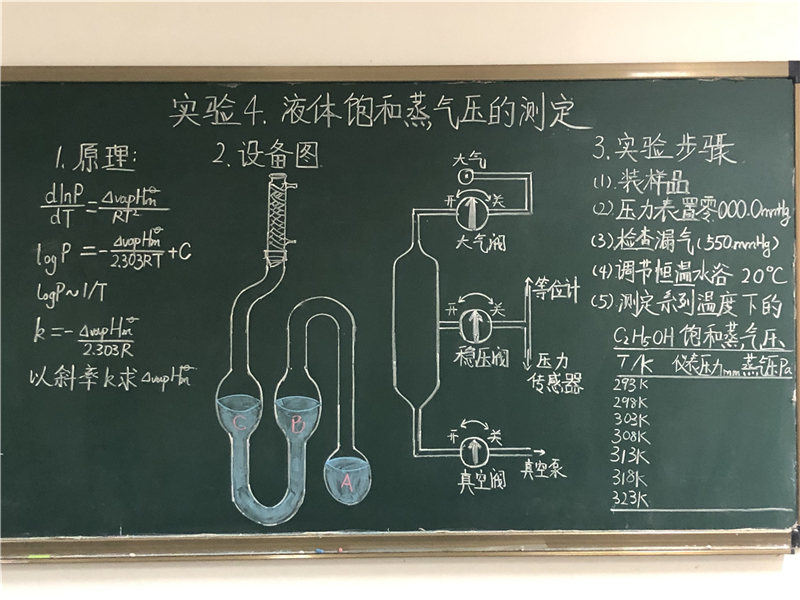 实验4.液体饱和蒸气压的测定
1.原理:
dlnP/dT = ΔvapHm⊖/RT²
logP = -ΔvapHm⊖/2.303RT + C
logP~1/T
k = -ΔvapHm⊖/2.303R
以斜率k求ΔvapHm⊖
2.设备图
C
B
A
大气
开 关
大气阀
等位计
开 关
稳压阀
压力
传感器
开 关
真空阀
真空泵
3.实验步骤
(1).装样品
(2).压力表置零000.0mmHg
(3)检查漏气(550mmHg)
(4)调节恒温水浴 20℃
(5)测定系列温度下的
C2H5OH饱和蒸气压
T/K 仪表压力mm 蒸气压Pa
293K
298K
303K
308K
313K
318K
323K